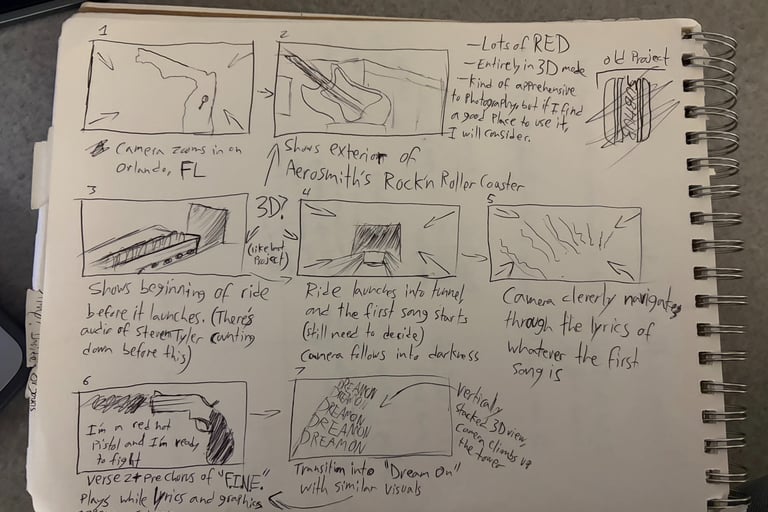 1
Camera zooms in on
Orlando, FL
2
Shows exterior of
Aerosmith's Rock'n Roller Coaster
—Lots of RED
—Entirely in 3D mode
—Kind of apprehensive
to Photography, but if I find
a good place to use it,
I will consider.
old Project
3
Shows beginning of ride
before it launches. (There's
audio of Steven Tyler counting
down before this)
3D?
(like last
Project)
4
Ride launches into tunnel
and the first song starts
(still need to decide)
Camera follows into darkness
5
Camera cleverly navigates
through the lyrics of
whatever the first
song is
6
I'm a red hot
Pistol and I'm ready
to fight
Verse 2 + prechorus of "F.I.N.E."
Plays while lyrics and graphics
7
DREAM ON
DREAM ON
DREAM ON
DREAM ON
DREAM ON
Vertically
stacked 3D view,
Camera climbs up
the tower
Transition into "Dream On"
with similar visuals